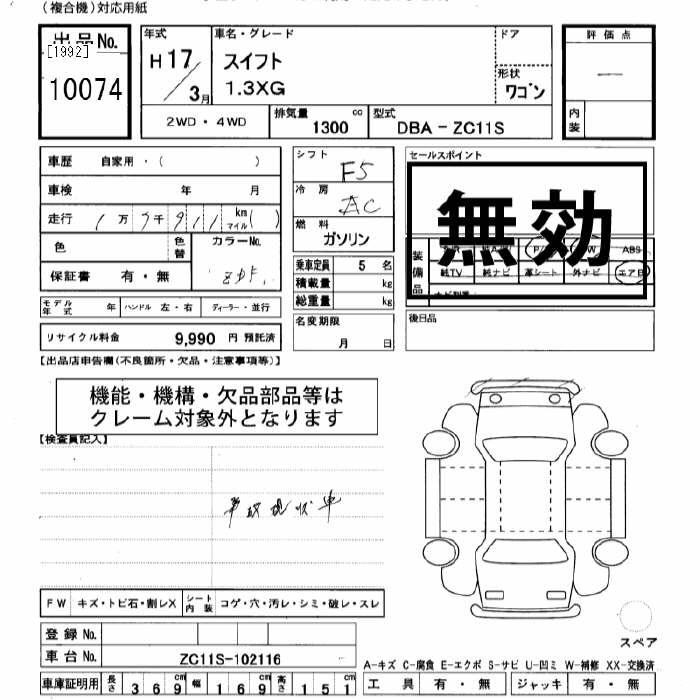 (複合機)対応用紙
出品No.
[1992]
10074
年式
H 17
3月
車名・グレード
スイフト
1.3XG
ドア
形状
ワゴン
評価点
—
内装
2WD・4WD
排気量
1300 cc
型式
DBA - ZC11S
車歴 自家用・( )
車検 年 月
走行 1万 7千 911 km マイル ( )
色 色替 カラーNo.
ZDF
保証書 有・無
モデル年式 年 ハンドル 左・右 ディーラー・並行
リサイクル料金 9,990 円 預託済
シフト
F5
冷房
AC
燃料
ガソリン
乗車定員 5 名
積載量 kg
総重量 kg
名変期限
月 日
セールスポイント
無効
装備品
ABS
純TV 純ナビ 革シート 外ナビ エアB
後日品
【出品店申告欄(不良箇所・欠品・注意事項等)】
機能・機構・欠品部品等は
クレーム対象外となります
【検査員記入】
事故現状車
FW キズ・トビ石・割レX シート内装 コゲ・穴・汚レ・シミ・破レ・スレ
登録No.
車台No. ZC11S-102116
車庫証明用 長さ 369 cm 幅 169 cm 高さ 151 cm
スペア
A-キズ C-腐食 E-エクボ S-サビ U-凹ミ W-補修 XX-交換済
工具 有・無 ジャッキ 有・無